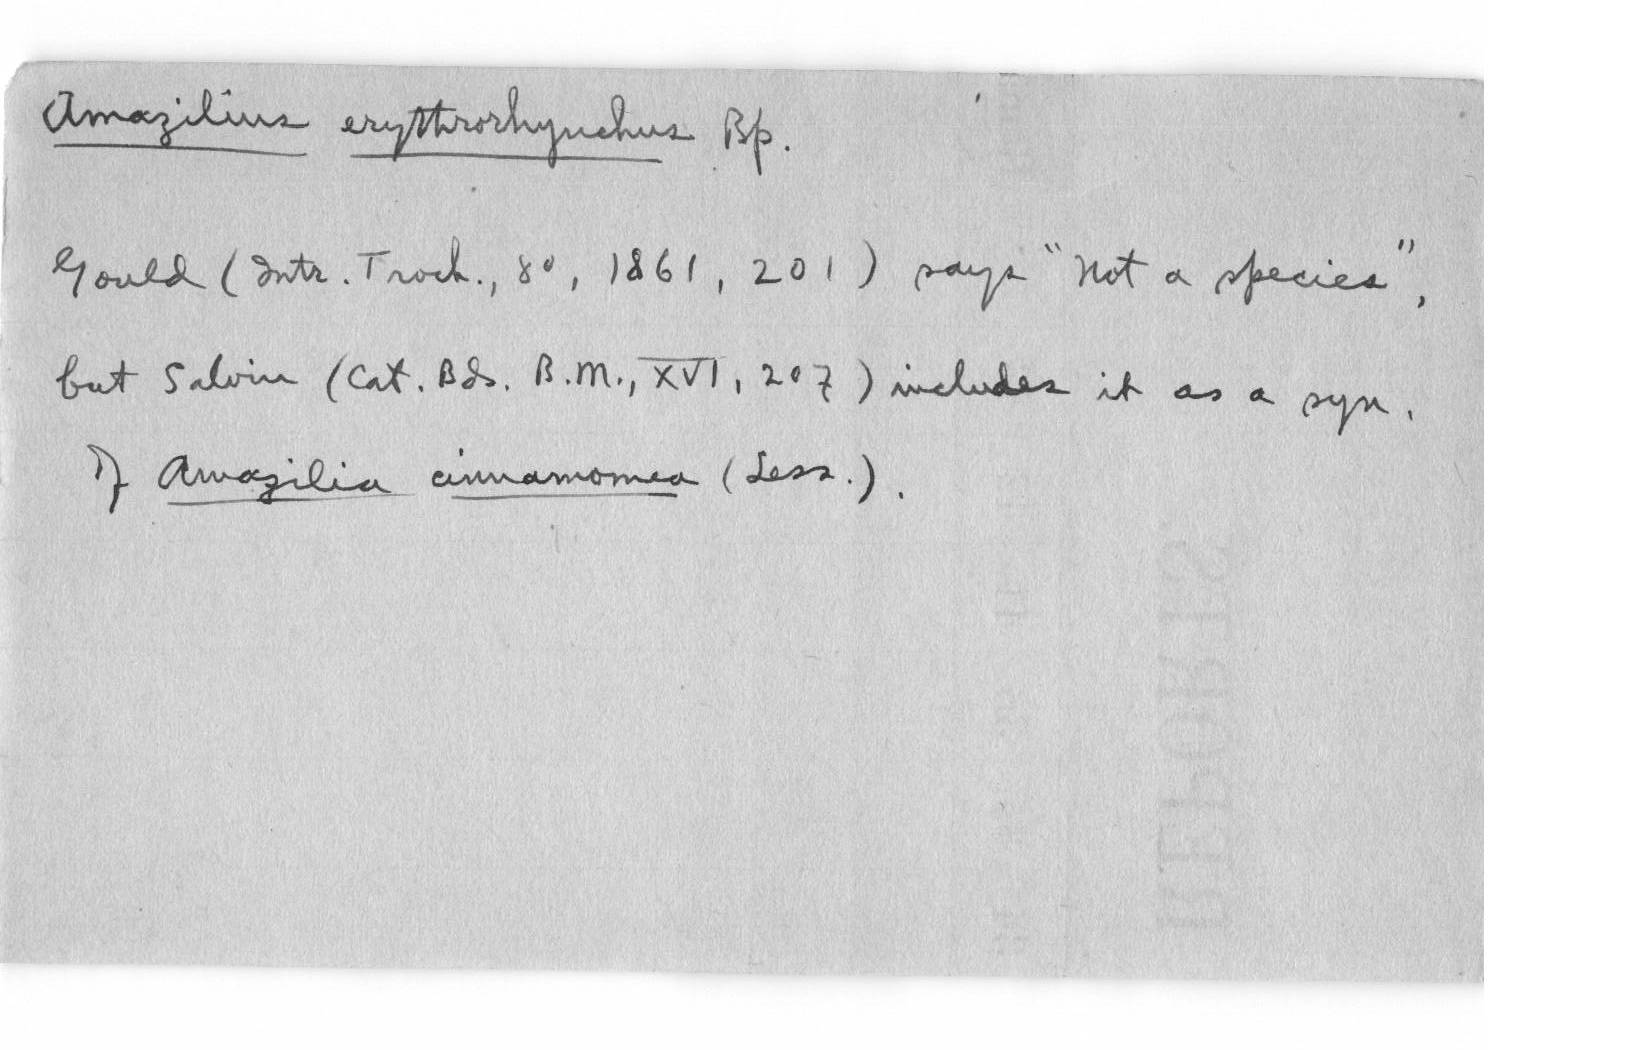 Amazilius erythrorhynchus Bp.
Gould (Intr. Troch., 8º, 1861, 201) says "Not a species",
but Salvin (Cat. Bds. B.M., XVI, 207) includes it as a syn.
of Amazilia cinnamomea (Less.).